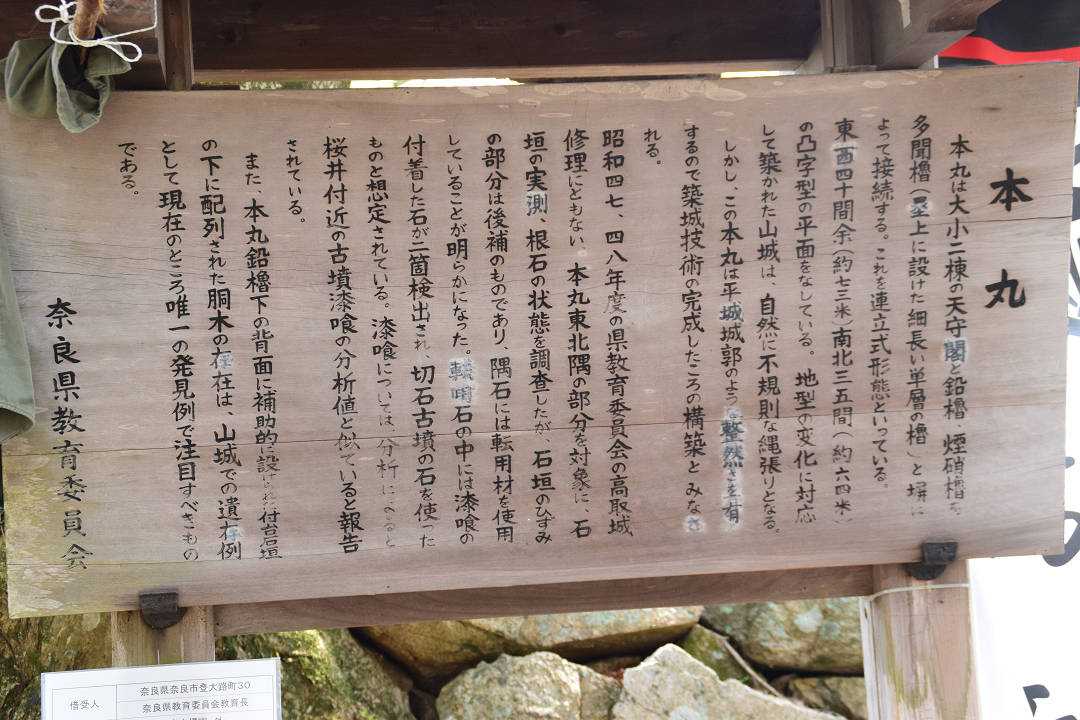 本丸
本丸は大小二棟の天守閣と鉛櫓、煙硝櫓を
多聞櫓(塁上に設けた細長い単層の櫓)と塀に
よって接続する。これを連立式形態といっている。
東西四十間余(約七三米)南北三五間(約六四米)
の凸字型の平面をなしている。地型の変化に対応
して築かれた山城は、自然に不規則な縄張りとなる。
しかし、この本丸は平城城郭のような整然さを有
するので築城技術の完成したころの構築とみなさ
れる。
昭和四七、四八年度の県教育委員会の高取城
修理にともない、本丸東北隅の部分を対象に、石
垣の実測、根石の状態を調査したが、石垣のひずみ
の部分は後補のものであり、隅石には転用材を使用
していることが明らかになった。転用石の中には漆喰の
付着した石が二箇検出され、切石古墳の石を使った
ものと想定されている。漆喰については、分析によると
桜井付近の古墳漆喰の分析値と似ていると報告
されている。
また、本丸鉛櫓下の背面に補助的に設けられた付台石垣
の下に配列された胴木の存在は、山城での遺存例
として現在のところ唯一の発見例で注目すべきもの
である。
奈良県教育委員会
借受人
奈良県奈良市登大路町30
奈良県教育委員会教育長